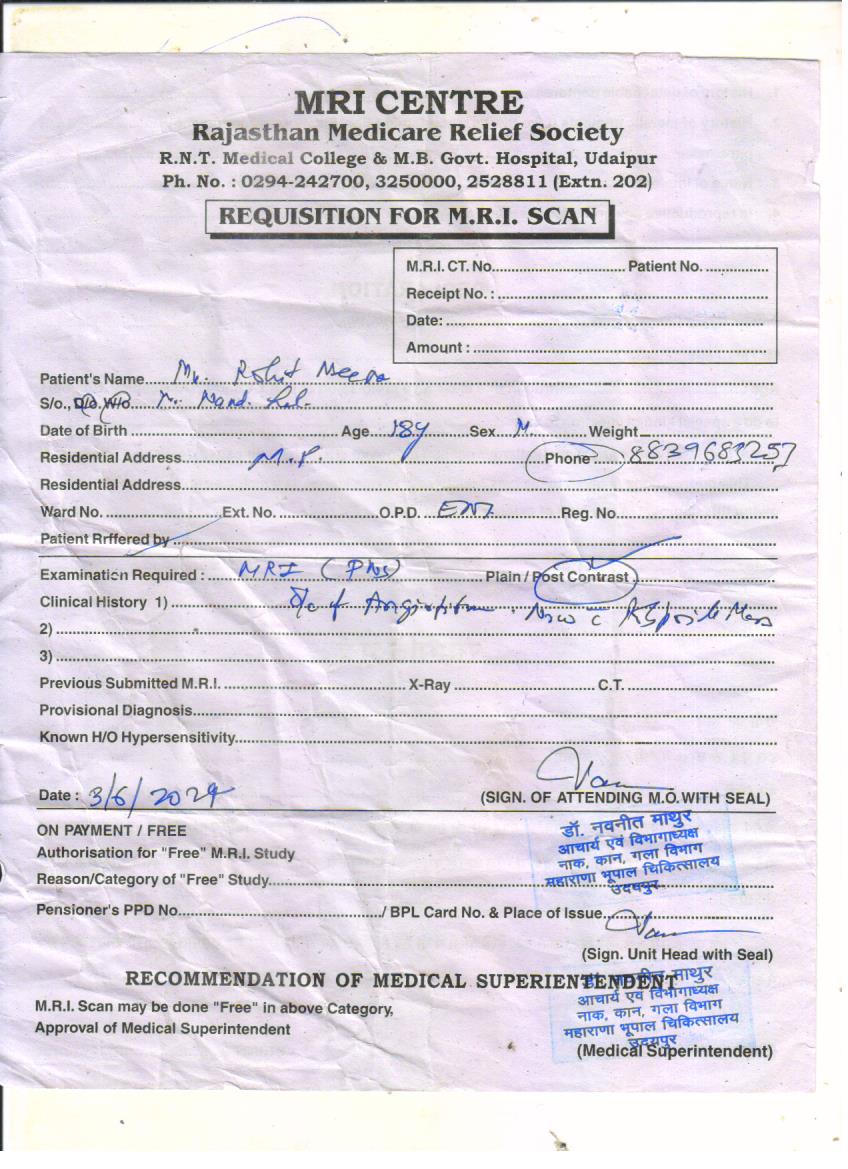 MRI CENTRE
Rajasthan Medicare Relief Society
R.N.T. Medical College & M.B. Govt. Hospital, Udaipur
Ph. No. : 0294-242700, 3250000, 2528811 (Extn. 202)
REQUISITION FOR M.R.I. SCAN
M.R.I. CT. No. Patient No.
Receipt No. :
Date:
Amount :
Patient's Name Mr. Rohit Meena
S/o., D/o. W/o. Mr. Nand Lal
Date of Birth Age 18y Sex M Weight
Residential Address M.P. Phone 8839683257
Residential Address
Ward No. Ext. No. O.P.D. ENT Reg. No.
Patient Rrffered by
Examination Required : MRI (PNS) Plain / Post Contrast
Clinical History 1) of Now c Mass
2)
3)
Previous Submitted M.R.I. X-Ray C.T.
Provisional Diagnosis
Known H/O Hypersensitivity
Date : 3/6/2024 (SIGN. OF ATTENDING M.O. WITH SEAL)
डॉ. नवनीत माथुर
आचार्य एवं विभागाध्यक्ष
नाक, कान, गला विभाग
महाराणा भूपाल चिकित्सालय
उदयपुर
ON PAYMENT / FREE
Authorisation for "Free" M.R.I. Study
Reason/Category of "Free" Study
Pensioner's PPD No. / BPL Card No. & Place of Issue
(Sign. Unit Head with Seal)
RECOMMENDATION OF MEDICAL SUPERIENTENDENT
M.R.I. Scan may be done "Free" in above Category,
Approval of Medical Superintendent
डॉ. नवनीत माथुर
आचार्य एवं विभागाध्यक्ष
नाक, कान, गला विभाग
महाराणा भूपाल चिकित्सालय
उदयपुर
(Medical Superintendent)